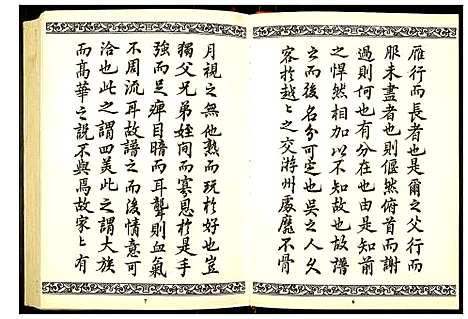 雁行而長者也是爾之父行而
服未盡者也則偃然俯首而謝
過則何也有分在也由是知前
之悍然相加以不知故也故譜
立而後名分可定也吳之人久
客於越上之交游州處靡不骨
6
月視之無他熟而玩於好也豈
獨父兄弟姪間而寡恩於是手
強而足痺目暗而耳聾則血氣
不周流耳故譜之而後情意可
洽也此之謂四美此之謂大族
而高華之說不與焉故家上有
7